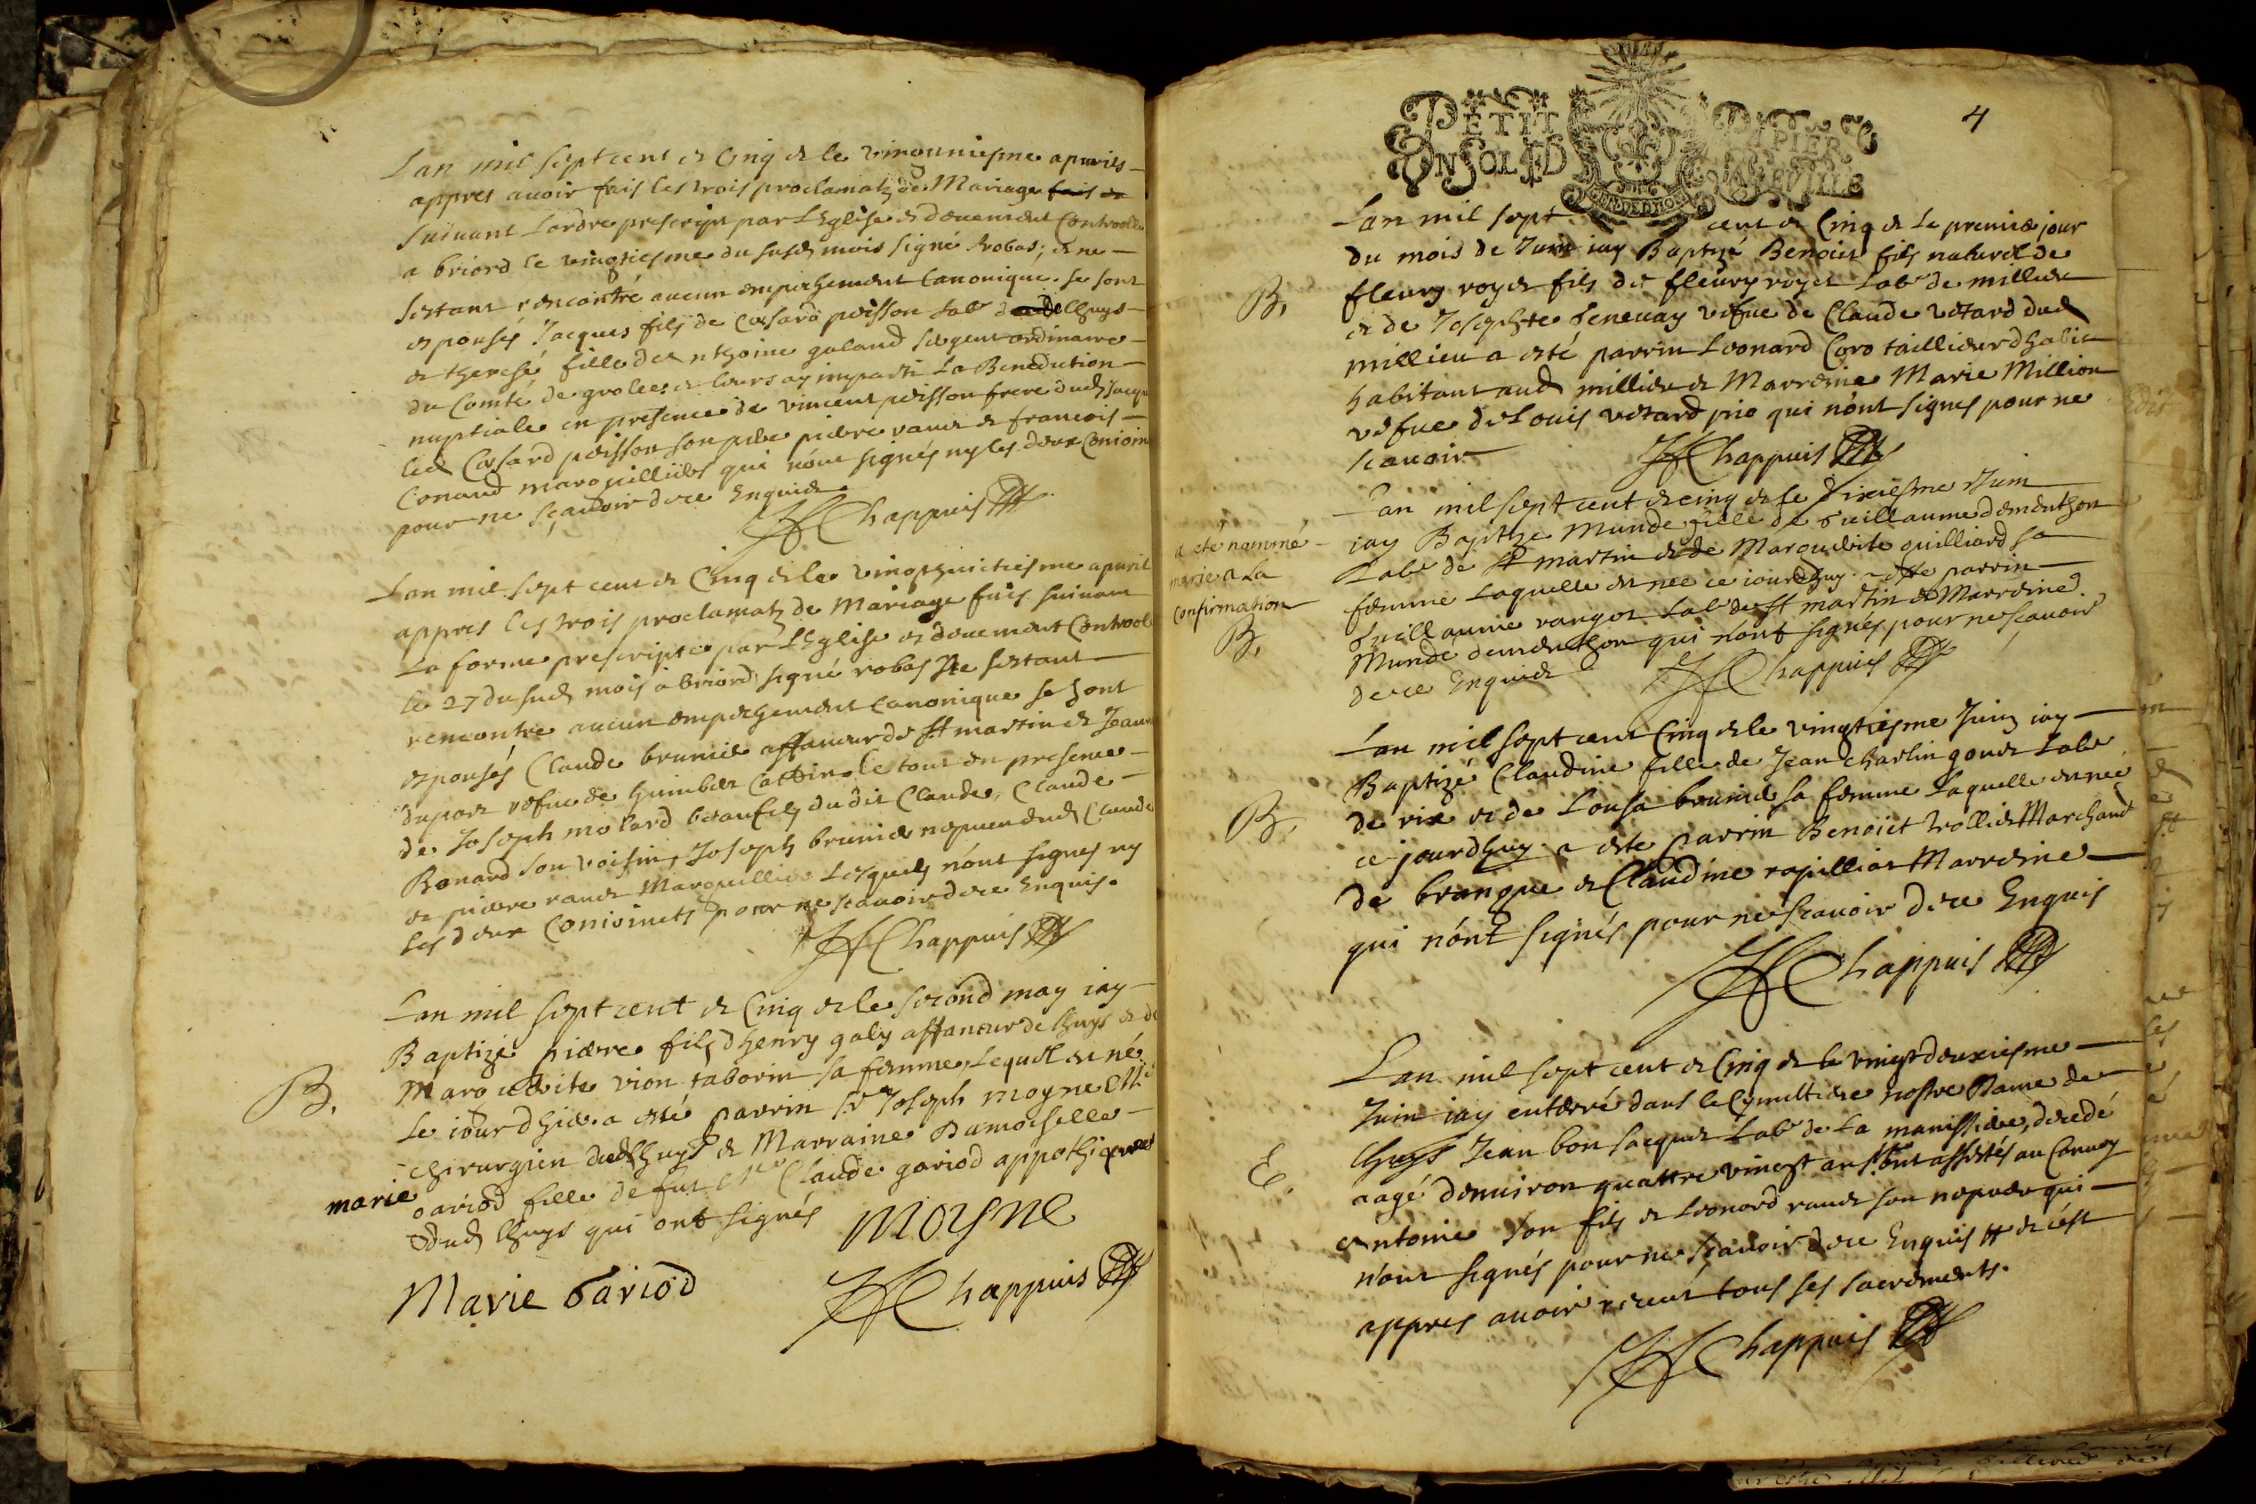 Lan mil sept cent et Cinq et le vingtuniesme apuril
appres auoir fais les trois proclamatz de Mariage fais et
suiuant Lordre prescript par LEglise et deuement Controolle
a briord le vingtiesme du susd mois signé Robas; et ne
sestant rencontré aucun empeschement Canonique se sont
espousés Jacques fils de Cesard poisson Lab dud Lhuys
et therese fille de Anthoine galand sergent ordinaire
du Comté de grolee et leurs ay imparti La Benediction
nuptiale en presence de vincent poisson frere dud Jacque
led Cesard poisson son pere pierre rauet et francois
Conand marguilliers qui nónt signés ny les deux Conioin
pour ne sçauoir de ce Enquis
Chappuis
Lan mil sept cent et Cinq et le vingthuictiesme apuril
appres les trois proclamatz de Mariage fais suiuant
La forme prescripte par LEglise et deuement Controole
le 27 du susd mois a briord signé robas Ne sestant
rencontre aucun empeschement Canonique se sont
espousés Claude brunier affaneur de st martin et Jeanne
dupont vefue de humbert Cattin le tout en presence
de Joseph molard beaufils du dit Claude, Claude
Bonard son voisin, Joseph brunier nepueu dud Claude
et pierre rauet Marguillier Lesquels nónt signes ny
les deux Conioincts pour ne scauoir de ce Enquis.
Chappuis
Lan mil sept cent et Cinq et le second may iay
B. Baptizé pierre fils dhenry galy affaneur de Lhuys et de
Marguerite vion taborin sa femme, Lequel est né
Le iour dhier a esté parrin sr Joseph moyne Me
chirurgien dud Lhuys et Marraine Damoiselle
marie gariod fille de fut Me Claude gariod appothiquere
dud Lhuys qui ont signés
MOYNE
Marie Gariod
Chappuis
4
PETIT PAPIER
UN SOL
Lan mil sept cent et Cinq et Le premier jour
du mois de Juin iay Baptizé Benoist fils naturel de
B, fleury royet fils de fleury royet Lab de millieu
et de Josephte Geneuay vefue de Claude vetard dud
millieu a esté parrin Leonard Coro taillieur dhabit
habitant aud millieu et Marreine Marie Million
vefue de Louis vetard qui nónt signes pour ne
scauoir
Chappuis
Lan mil sept cent et cinq et le dixiesme Juin
a eté nommé
marie a La
confirmation
B,
iay Baptize Munde fille de Guillaume dementhon
Lab de st martin et de Marguerite quilliard sa
femme Laquelle est nee ce iourdhuy a esté parrin
Guillaume ranget Lab de st martin et Marreine
Munde dementhon qui nont signés pour ne scauoir
de ce Enquis
Chappuis
Lan mil sept cent Cinq et le vingtiesme Juin iay
B, Baptizé Claudine fille de Jean charlin gonet Lab
de rix et de Lousa brunier sa femme Laquelle est nee
ce jourdhuy a este parrin Benoict trollier Marchand
de brangue et Claudine rapillier Marreine
qui nónt signés pour ne scauoir de ce Enquis
Chappuis
Lan mil sept cent et Cinq et le vingtdeuxiesme
Juin iay enterré dans le Cymittiere nostre Dame de
E. Lhuys Jean bon Jacques Lab de La manissiere, decedé
aagé denuiron quattre vingt ans ont assistés au Conuoy
Antoine son fils et Leonard rauet son nepueu qui
nónt signés pour ne scauoir de ce Enquis et c'est
appres auoir receut tous ses sacrements.
Chappuis